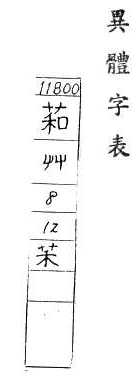 異體字表
11800
萂
艸
8
12